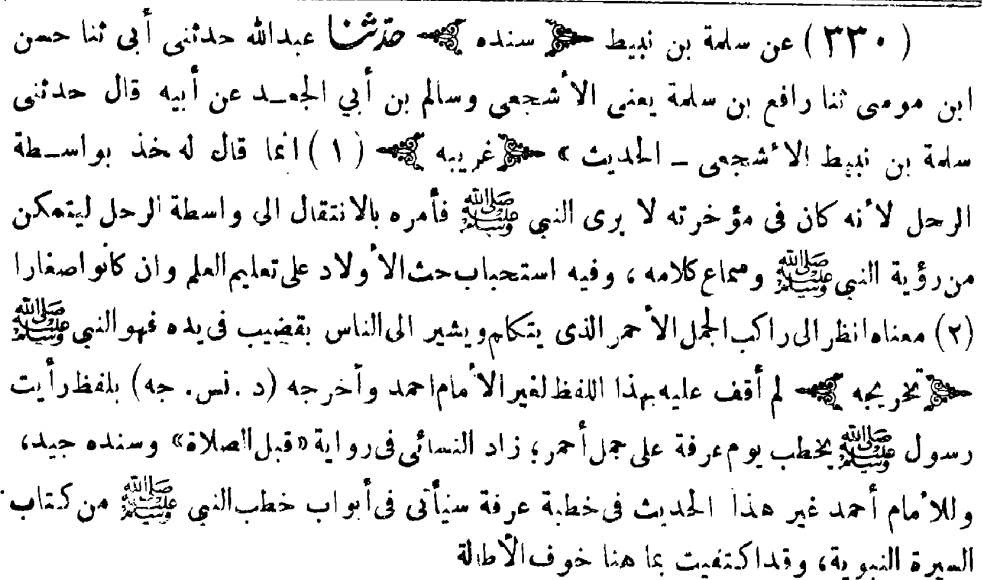 (٣٣٠) عن سلمة بن نبيط ﴿ سنده ﴾ حدثنا عبدالله حدثنى أبى ثنا حسن
ابن موسى ثنا رافع بن سلمة يعنى الأشجعى وسالم بن أبي الجعد عن أبيه قال حدثنى
سلمة بن نبيط الأشجعى ـ الحديث » ﴿ غريبه ﴾ (١) انما قال له خذ بواسطة
الرحل لأنه كان فى مؤخرته لا يرى النبى ﷺ فأمره بالانتقال الى واسطة الرحل ليتمكن
من رؤية النبى ﷺ وسماع كلامه ، وفيه استحباب حث الأولاد على تعليم العلم وان كانوا صغارا
(٢) معناه انظر الى راكب الجمل الأحمر الذى يتكلم ويشير الى الناس بقضيب فى يده فهو النبى ﷺ
﴿ تخريجه ﴾ لم أقف عليه بهذا اللفظ لغير الأمام احمد وأخرجه (د . نس . جه) بلفظ رأيت
رسول ﷺ يخطب يوم عرفة على جمل أحمر ؛ زاد النسائى فى رواية «قبل الصلاة» وسنده جيد،
وللأمام أحمد غير هذا الحديث فى خطبة عرفة سيأتى فى أبواب خطب النبى ﷺ من كتاب
السيرة النبوية، وقد اكتفيت بما هنا خوف الأطالة